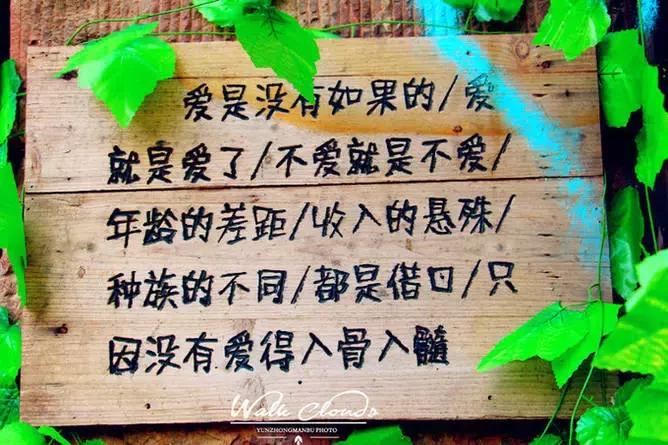 爱是没有如果的/爱
就是爱了/不爱就是不爱/
年龄的差距/收入的悬殊/
种族的不同/都是借口/只
因没有爱得入骨入髓
Walk Clouds
YUNZHONGMANBU PHOTO